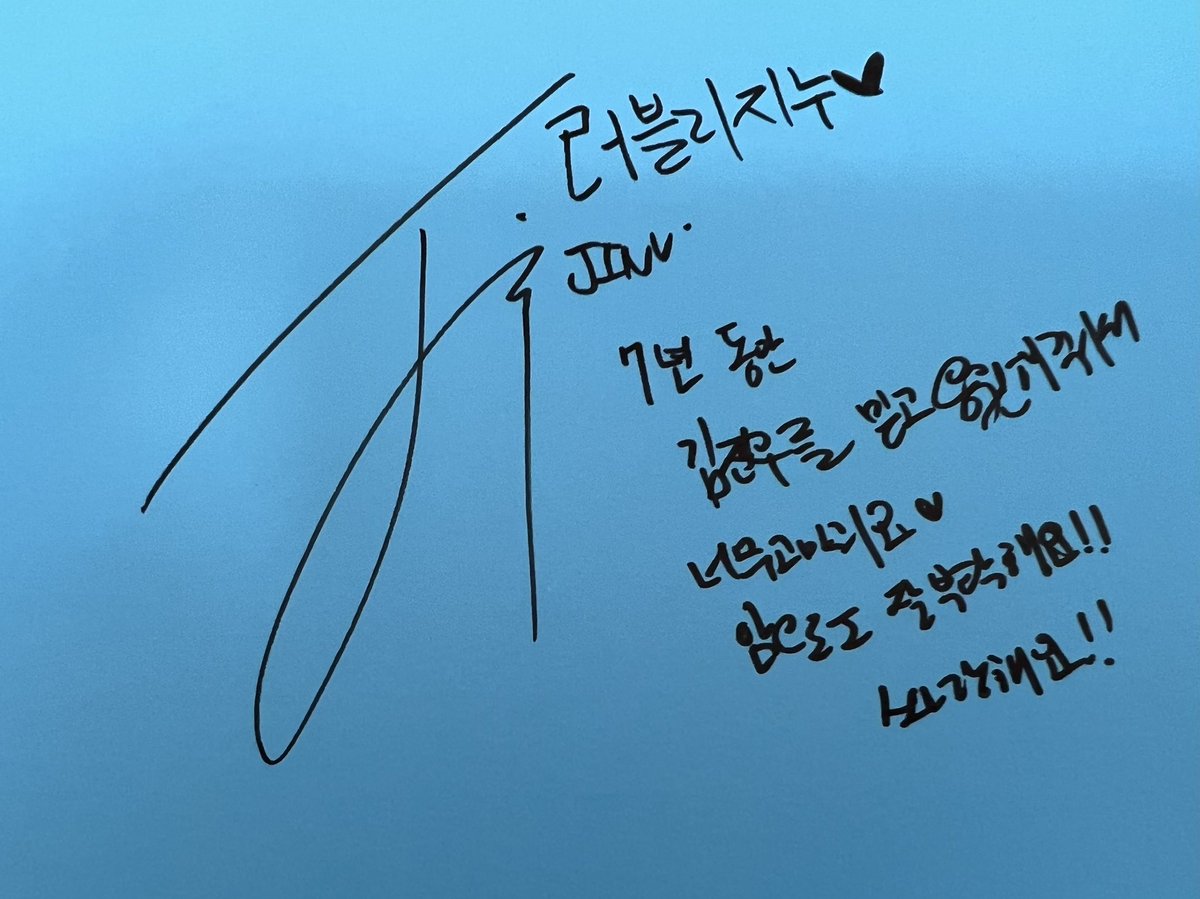 러블리지누♥
JINU.
7년 동안
김진우를 믿고 응원해줘서
너무 고마워요♥
앞으로도 잘 부탁해요!!
사랑해요!!